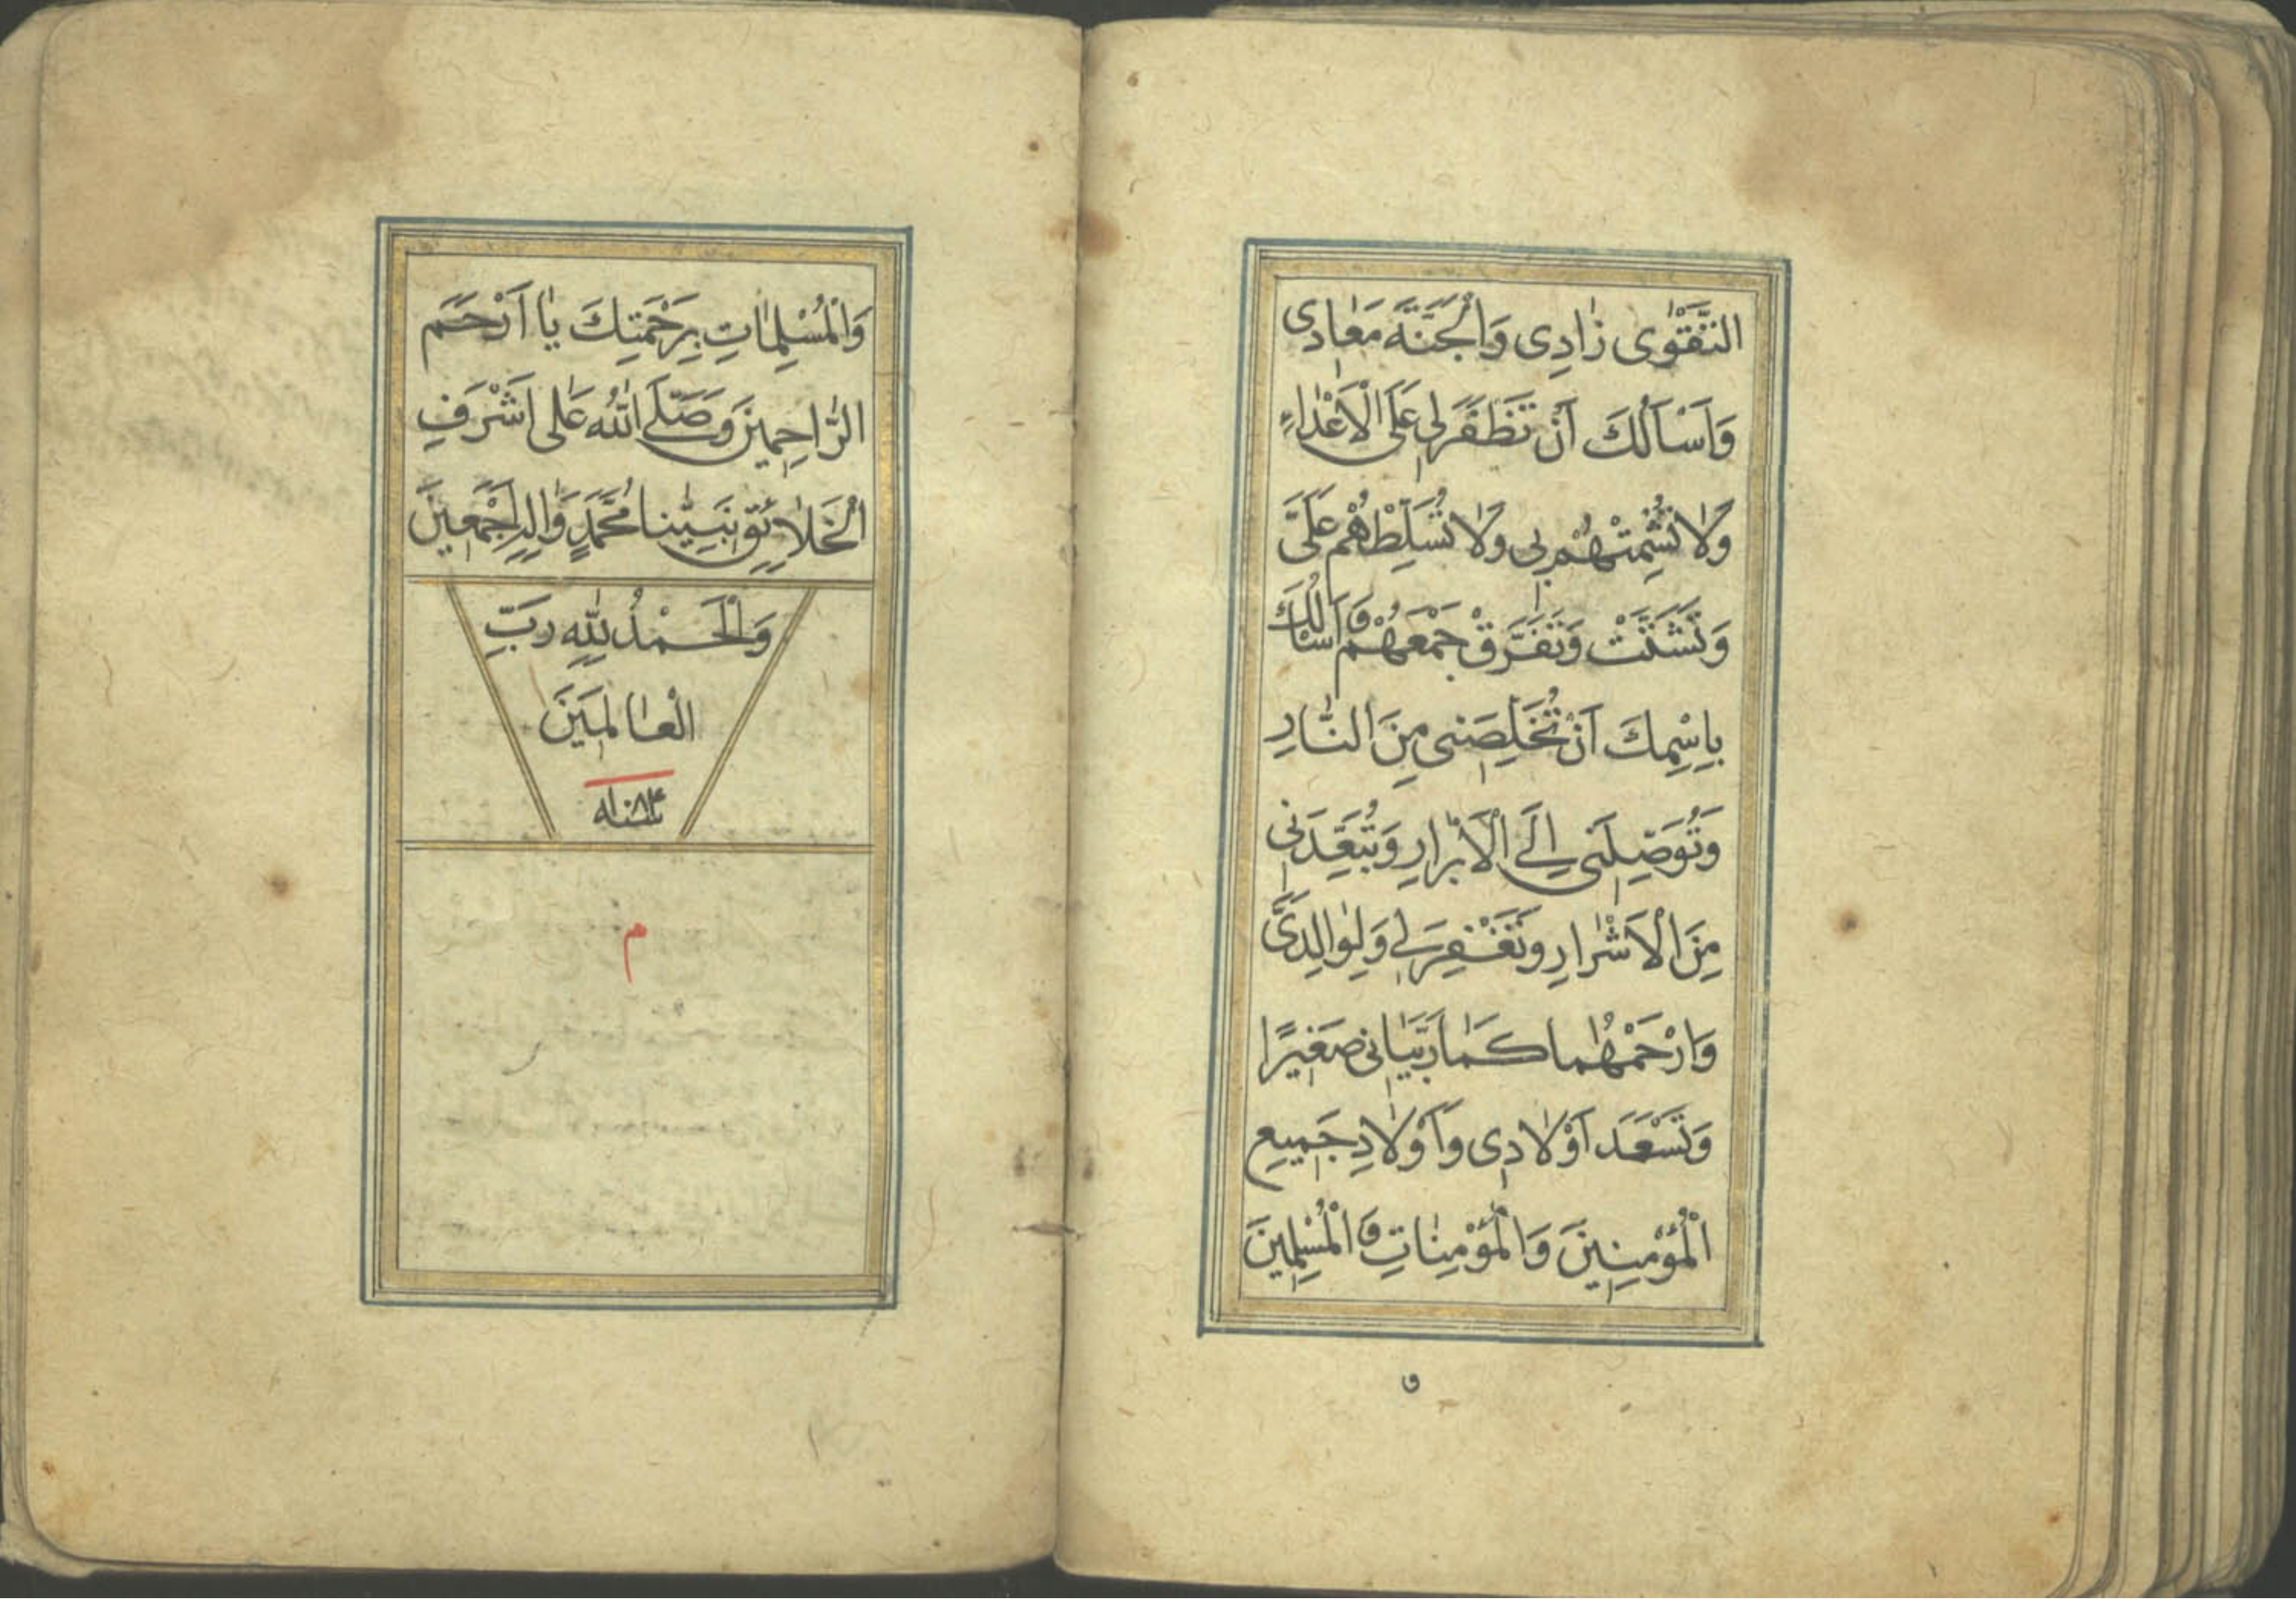 التَّقْوٰى زٰادِى وَالْجَنَّةَ مَعٰادِى
وَاَسْاَلُكَ اَنْ تَظْفَرَ لِى عَلَى الْاَعْدٰاءِ
وَلٰا تُشْمِتْهُمْ بِى وَلٰا تُسَلِّطْهُمْ عَلَىَّ
وَتَشَتَّتْ وَتَفَرَّقْ جَمْعَهُمْ وَاَسْالُكَ
بِاِسْمِكَ اَنْ تُخَلِّصَنِى مِنَ النّٰارِ
وَتُوَصِّلَنِى اِلَى الْاَبْرٰارِ وَتُبَعِّدَنِى
مِنَ الْاَشْرٰارِ وَتَغْفِرَ لِى وَلِوٰالِدَىَّ
وَارْحَمْهُمٰا كَمٰا رَبَّيٰانِى صَغِيرًا
وَتَسْعَدَ اَوْلٰادِى وَاَوْلٰادِ جَمِيعِ
الْمُؤْمِنِينَ وَالْمُؤْمِنٰاتِ وَالْمُسْلِمِينَ
و
وَالْمُسْلِمٰاتِ بِرَحْمَتِكَ يٰا اَرْحَمَ
الرّٰاحِمِينَ وَصَلَّى اللّٰهُ عَلٰى اَشْرَفِ
الْخَلٰائِقِ نَبِيِّنٰا مُحَمَّدٍ وَاٰلِهِ اَجْمَعِينَ
وَالْحَمْدُ لِلّٰهِ رَبِّ
الْعٰالَمِينَ
سنه
م